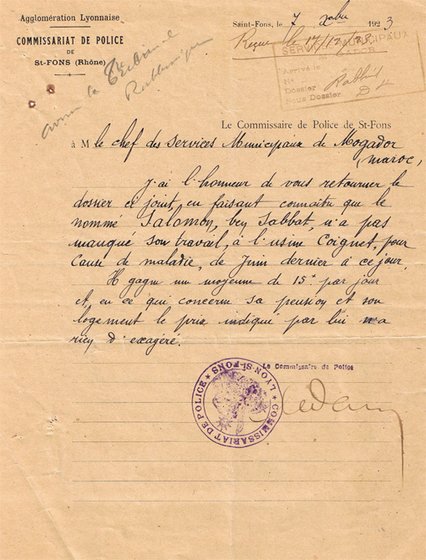 Agglomération Lyonnaise
COMMISSARIAT DE POLICE
DE
ST-FONS (Rhône)
Saint-Fons, le 7 xbre 1923
Reçu le 17/12/23
SERVICES MUNICIPAUX
Arrivé le
N°
Dossier Rabbit
Sous Dossier
Le Commissaire de Police de St-Fons
à M le chef des services Municipaux de Mogador
(Maroc)
J'ai l'honneur de vous retourner le
dossier ci joint, en faisant connaître que le
nommé Salomon, bey Sabbat, n'a pas
manqué son travail, à l'usine Coignet, pour
cause de maladie, de Juin dernier à ce jour
Il gagne un moyenne de 15f par jour
et, en ce qui concerne sa pension et son
logement le prix indiqué par lui n'a
rien d'exagéré.
Le Commissaire de Police
COMMISSARIAT DE POLICE * LYON-ST-FONS *